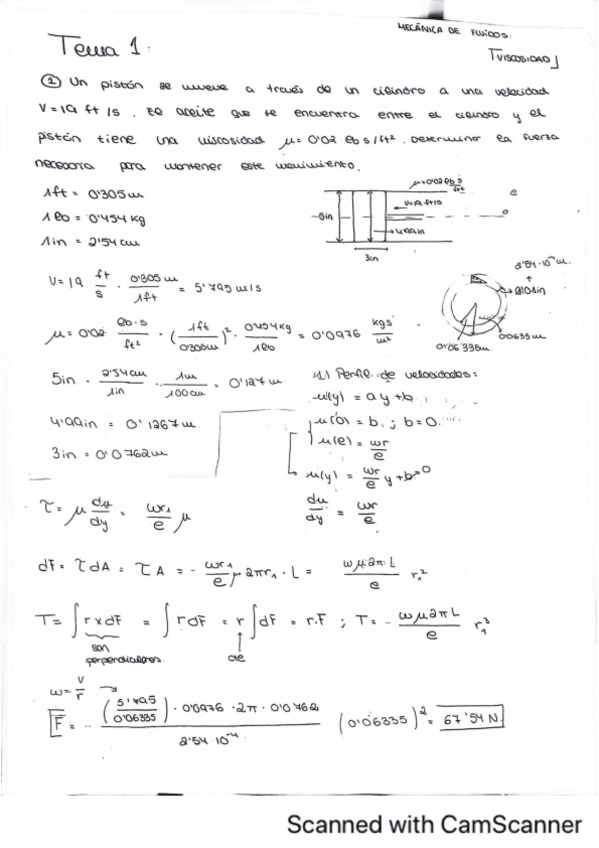 MECÁNICA DE FLUIDOS.
Tema 1.
VISCOSIDAD
① Un pistón se mueve a través de un cilindro a una velocidad
V = 19 ft/s. El aceite que se encuentra entre el cilindro y el
pistón tiene una viscosidad μ = 0'02 lb s/ft². Determinar la fuerza
necesaria para mantener este movimiento.
1ft = 0'305 m
1 lb = 0'454 kg
1in = 2'54 cm
μ=0'02 lb s/ft²
V=19 ft/s
5in
4'99in
3in
e
0
V= 19 ft/s · 0'305 m/1ft = 5'795 m/s
2'54·10⁻⁴ m.
0'01in
0'0635m
0'06335m
μ= 0'02 lb·s/ft² · (1ft/0'305m)² · 0'454kg/1lb = 0'0976 kg s/m²
5in · 2'54cm/1in · 1m/100cm = 0'127 m
4'99in = 0'1267 m
3in = 0'0762m
1) Perfil de velocidades:
u(y) = ay + b
u(0) = b ; b=0
u(e) = ωr/e
u(y) = ωr/e y + b→0
du/dy = ωr/e
τ = μ du/dy = ωr₁/e μ
dF = τ dA = τ A = - ωr₁/e μ 2πr₁ · L = ωμ2π·L/e r₁²
T = ∫ r x dF = ∫ r dF = r ∫ dF = r·F ; T = - ωμ2πL/e r₁³
son
perpendiculares
cte
ω = v/r
F = - (5'795/0'06335) · 0'0976 · 2π · 0'0762 / 2'54 10⁻⁴ (0'06335)² = 67'54 N
Scanned with CamScanner